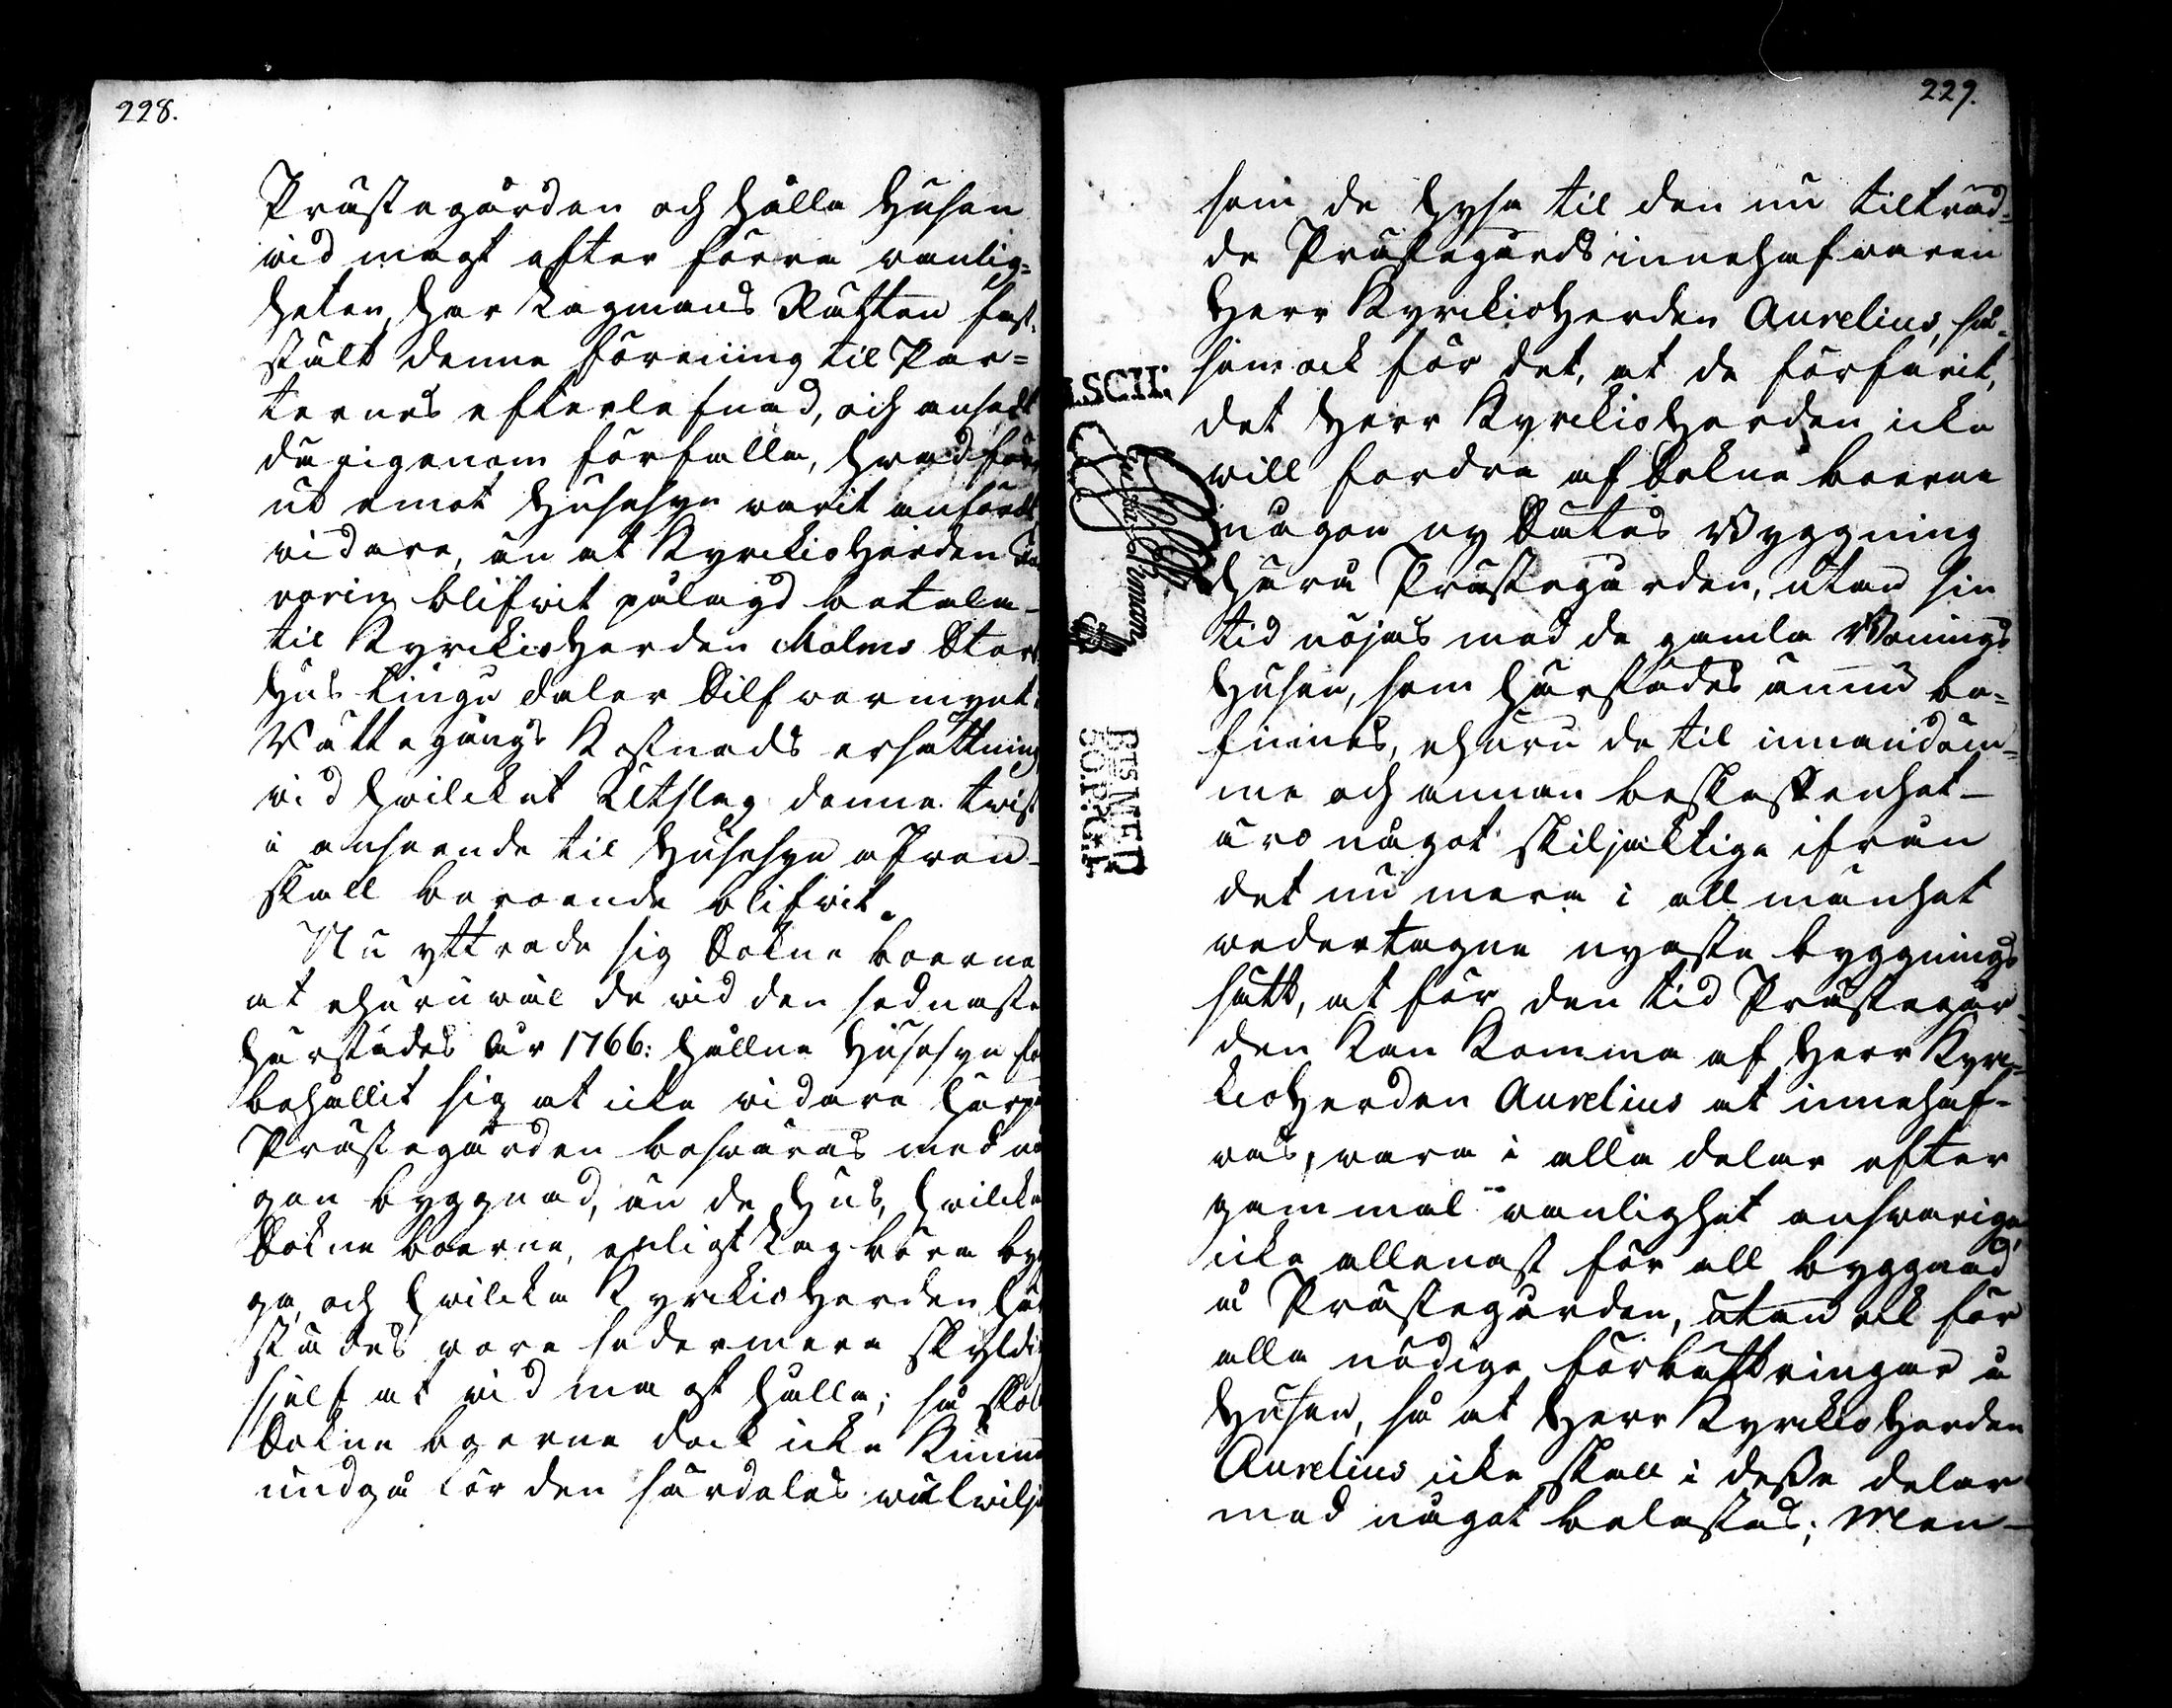 228.
Prästegården och hålla Husen
vid magt efter förra vanlig=
heten, har Lagmans Rätten fast=
stält denna förening til Par=
ternes efterlefnad, och ansedt
därigenom förfalla, hvad för
ut emot Husesyn varit anfördt
vidare, än at Kyrckioherden
blifvit pålagd betala
til Kyrckioherden Malms Sterb
Hus tingu daler Silfvermynt i
Rättegångs Kostnads ersättning
vid hvilcket Utslag denne twist
i anseende til Husesyn
skall beroende blifvit.
Nu yttrade sig Sokneboerne
at ehuruväl de vid den sednaste
härstädes år 1766: hållne Husesyn för
behållit sig at icke vidare härpå
Prästegården besväras med nå
gon byggnad, än de Hus, hvilcka
Sokneboerne, enligt Lag böra byg
ga, och hvilcka Kyrckioherden här
städes vore sedermera skyldig
sjelf at vid magt hålla; så skola
Sokneboerne dock icke kunna
undgå för den särdeles välvilja
229.
som de hysa til den nu tilträd=
de Prästegårds innehafvaren
Herr Kyrckioherden Aurelius, så=
som ock för det, at de förfarit,
det Herr Kyrckioherden icke
vill fordra af Sokneboerne
någon ny Sätes Byggning
hära Prästegården, utan sin
tid nöjas med de gamla Vånings
Husen, som härstädes ännu be=
finnes, ehuru de til innandöm=
me och annan beskaffenhet
äro något skiljaktige ifrån
det nu mera i allmänhet
vedertagne nyaste byggnings
sätt, at för den tid Prästegår=
den kan komma af Herr Kyrc=
kioherden Aurelius at innehaf=
vas, vara i alla delar efter
gammal vanlighet ansvarige,
icke allenast för all byggnad
å Prästegården, utan ock för
alla nödige förbättringar å
Husen, så at Herr Kyrckioherden
Aurelius icke skall i desse delar
med något belastas; Men